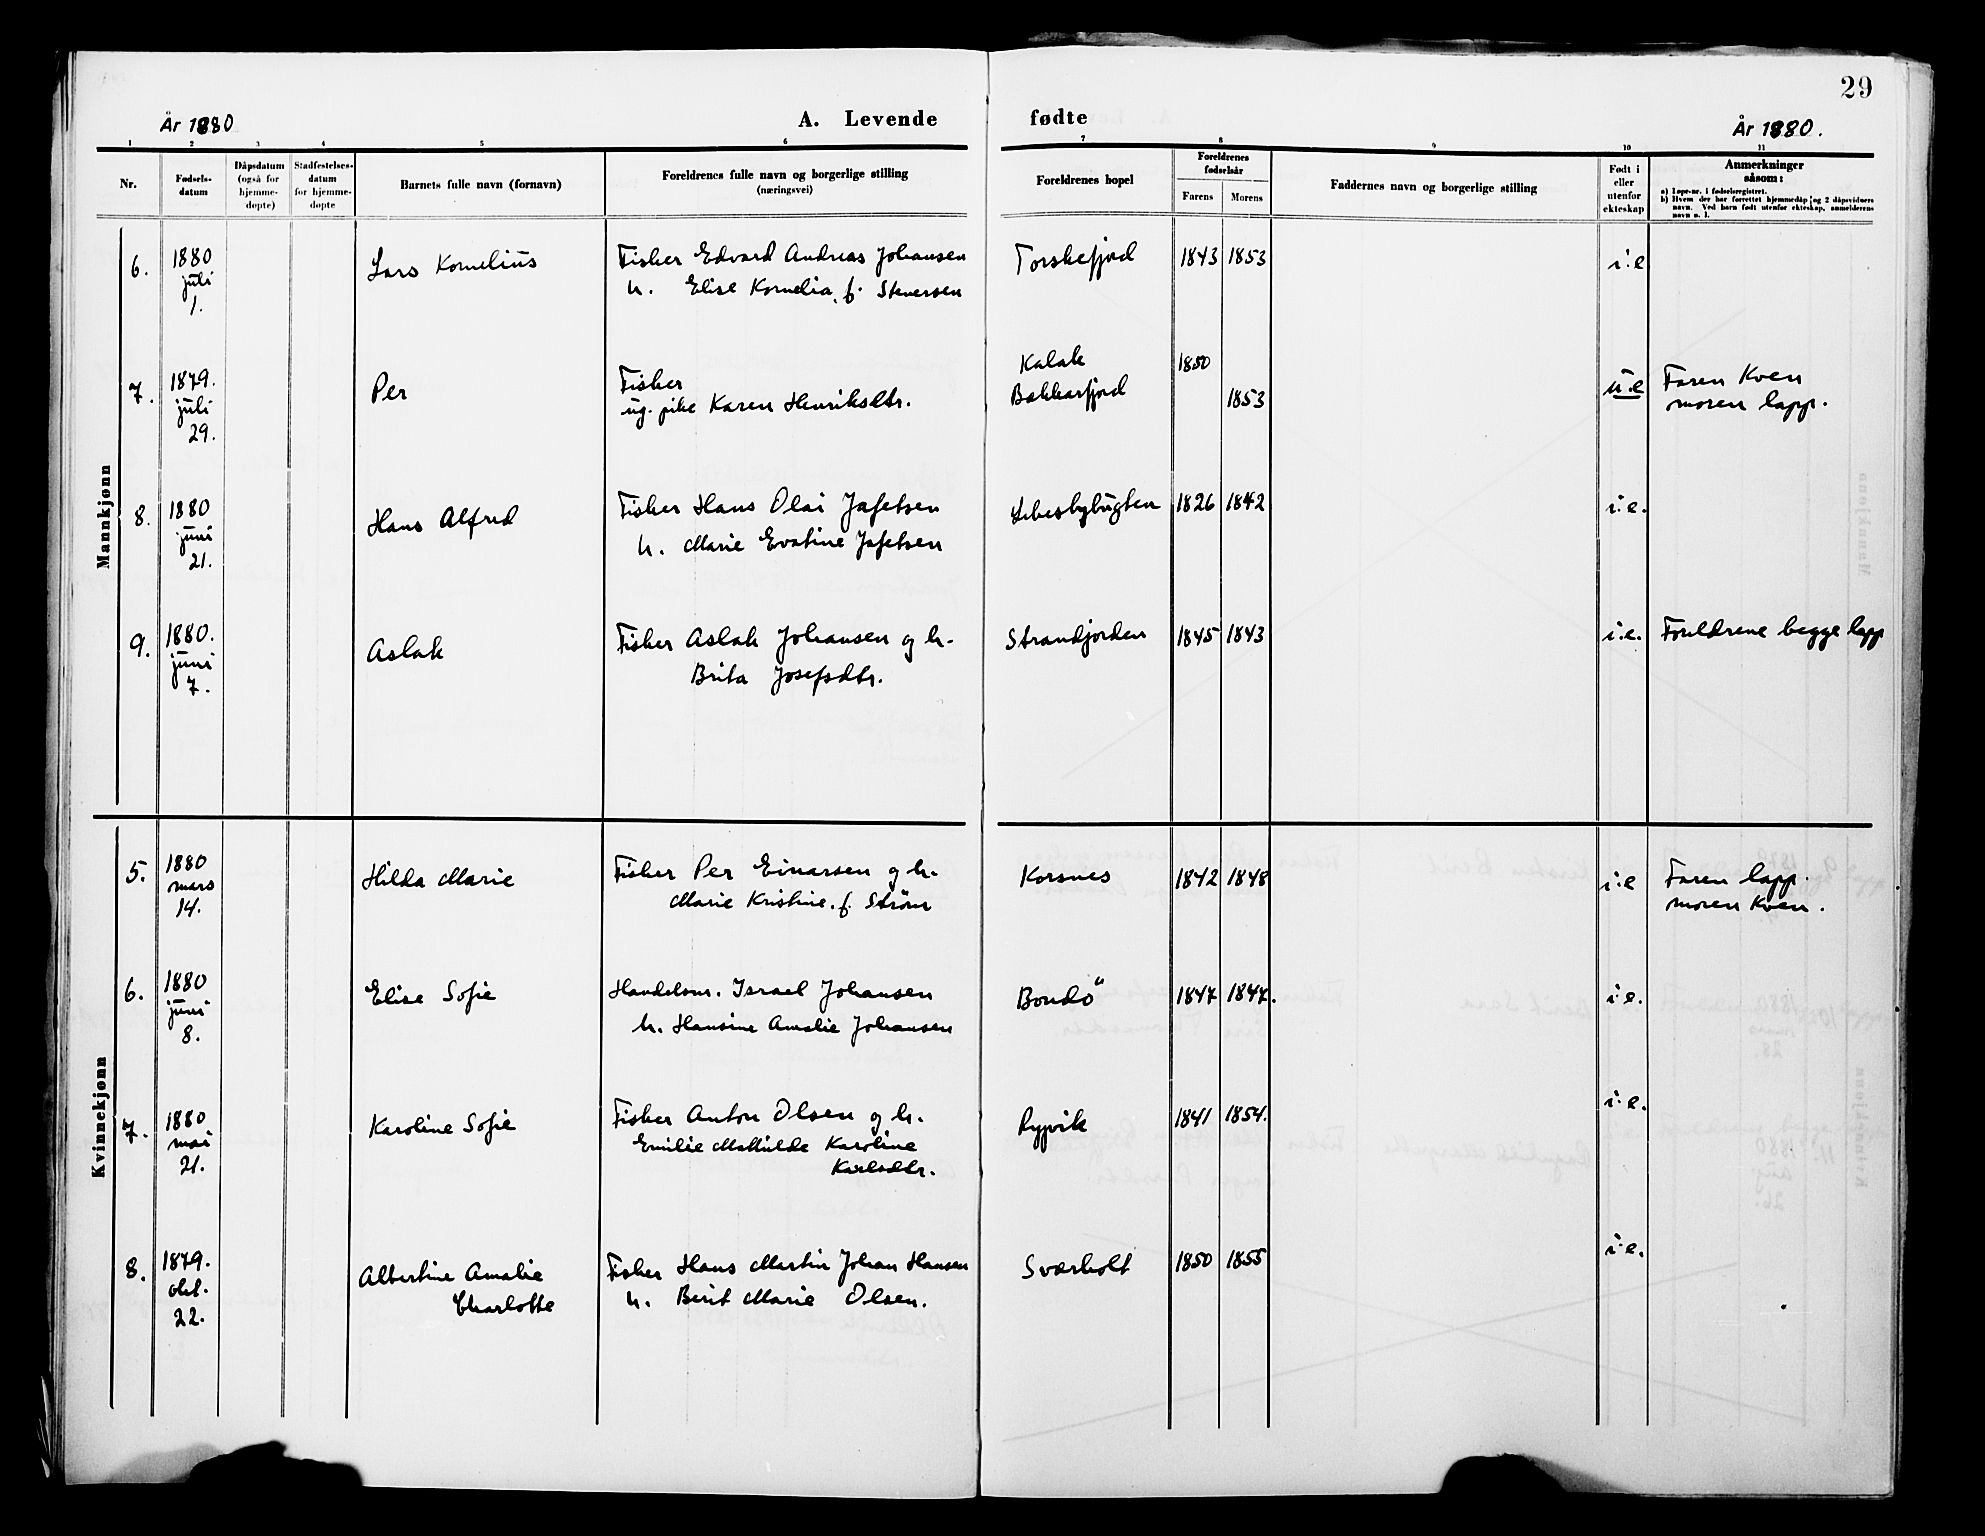 29
År 1880
A. Levende
fødte
År 1880.
1 2 3 4 5 6 7 8 9 10 11
Nr.
Fødselsdatum
Dåpsdatum (også for hjemmedøpte)
Stadfestelsesdatum for hjemmedøpte
Barnets fulle navn (fornavn)
Foreldrenes fulle navn og borgerlige stilling
(næringsvei)
Foreldrenes bopel
Foreldrenes fødselsår
Farens Morens
Faddernes navn og borgerlige stilling
Født i eller utenfor ekteskap
Anmerkninger
såsom:
a) Løpe-nr. i fødselsregistret.
b) Hvem der har forrettet hjemmedåp og 2 dåpsvidners
navn. Ved barn født utenfor ekteskap, anmelderens
navn o. l.
Mannkjønn
6. 1880 juli 1. Lars Kornelius
Fisker Edvard Andreas Johansen
h. Elise Kornelia, f. Stenersen
Torskefjord 1843 1853 i.e
7. 1879. juli 29. Per
Fisker
ug. pike Karen Henriksdtr.
Kalak 1850
Bekkarfjord 1853
u.e
Faren Kven
moren lapp.
8. 1880 juni 21. Hans Alfred
Fisker Hans Olai Jafetsen
h. Marie Evatine Jafetsen
Lebesbybugten 1826 1842 i.e.
9. 1880. juni 7. Aslak
Fisker Aslak Johansen og h.
Brita Josefsdtr.
Strandjorden 1845 1843 i.e. Foreldrene begge lapp
Kvinnekjønn
5. 1880 mars 14. Hilda Marie
Fisker Per Einarsen og h.
Marie Kristine, f. Strøm
Korsnes 1842 1848 i.e
Faren lapp.
moren Kven.
6. 1880 juni 8. Elise Sofie
Handelsm. Israel Johansen
h. Hansine Amalie Johansen
Bondö 1847 1847. i.e.
7. 1880 mai 21. Karoline Sofie
Fisker Anton Olsen og h.
Emilie Mathilde Karoline
Karlsdtr.
Rypvik 1841 1854. i.e.
8. 1879. okt. 22. Albertine Amalie
Charlotte
Fisker Hans Martin Johan Hansen
h. Berit Marie Olsen.
Sværholt 1850 1855 i.e.